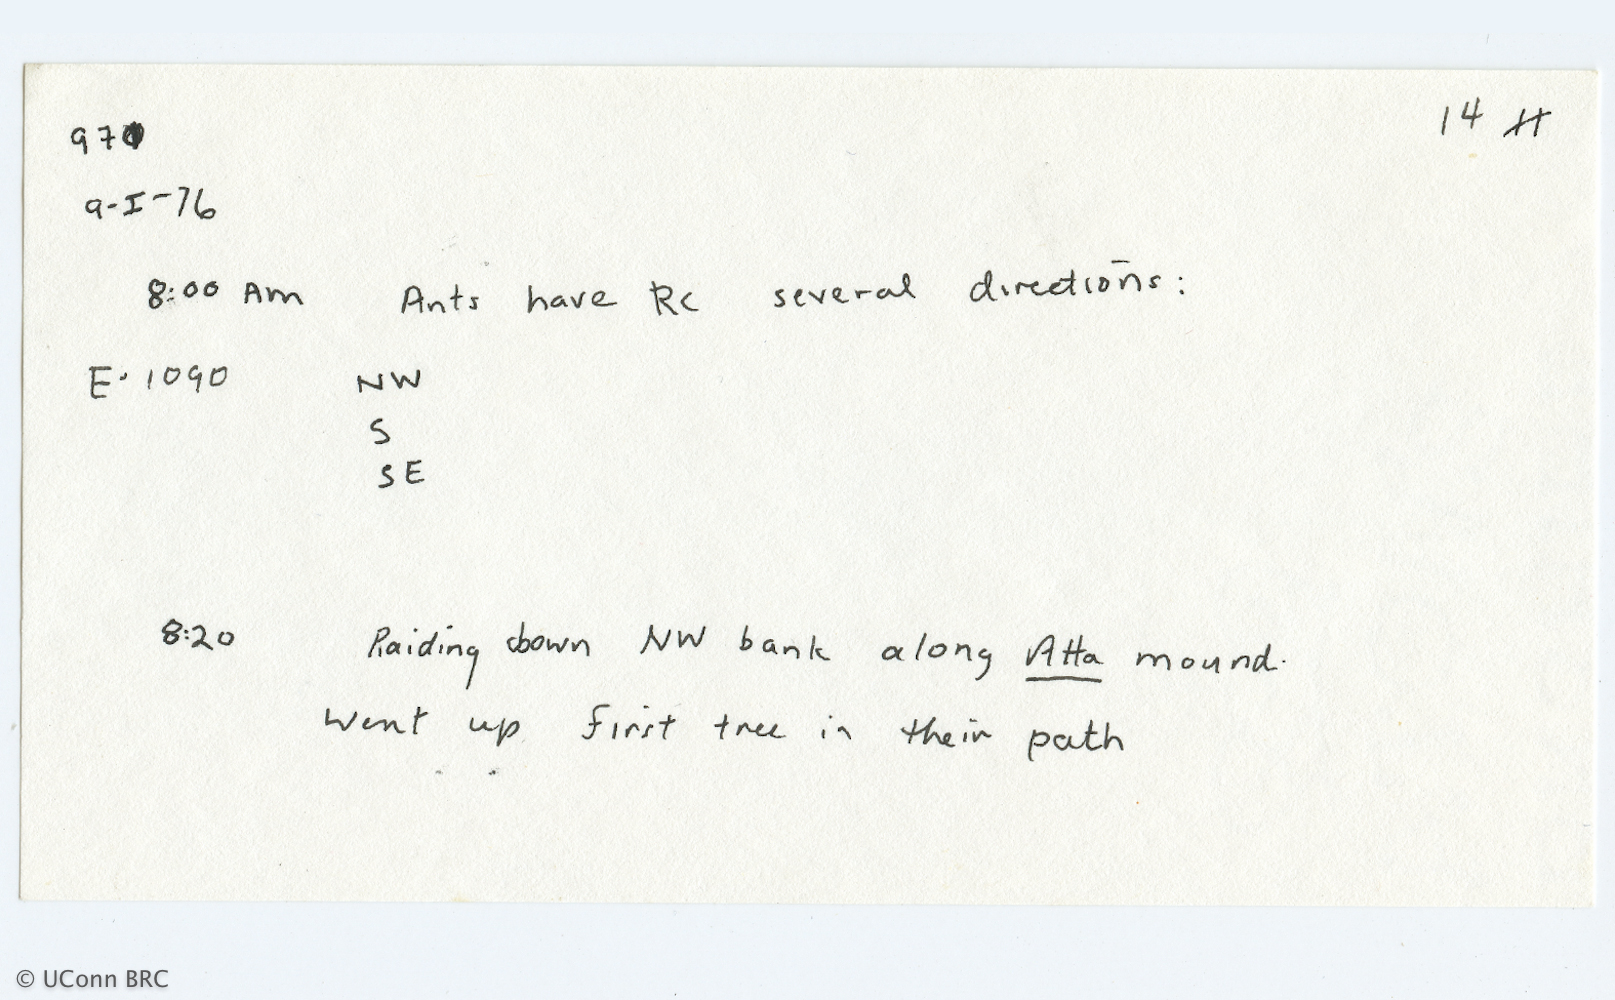 970
14
9-I-76
8:00 AM Ants have RC several directions:
E. 1090 NW
S
SE
8:20 Raiding down NW bank along Atta mound.
Went up first tree in their path
© UConn BRC